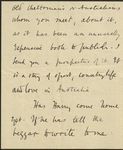 old Cheltonians or Australians
whom you meet, about it,
as it has been an unusual
expense both to publish. I
send you a prospectus of it. It
is a story of sport, country life
and love in Australia
Has Harry come home
yet. If he has tell the
beggar to write to me.